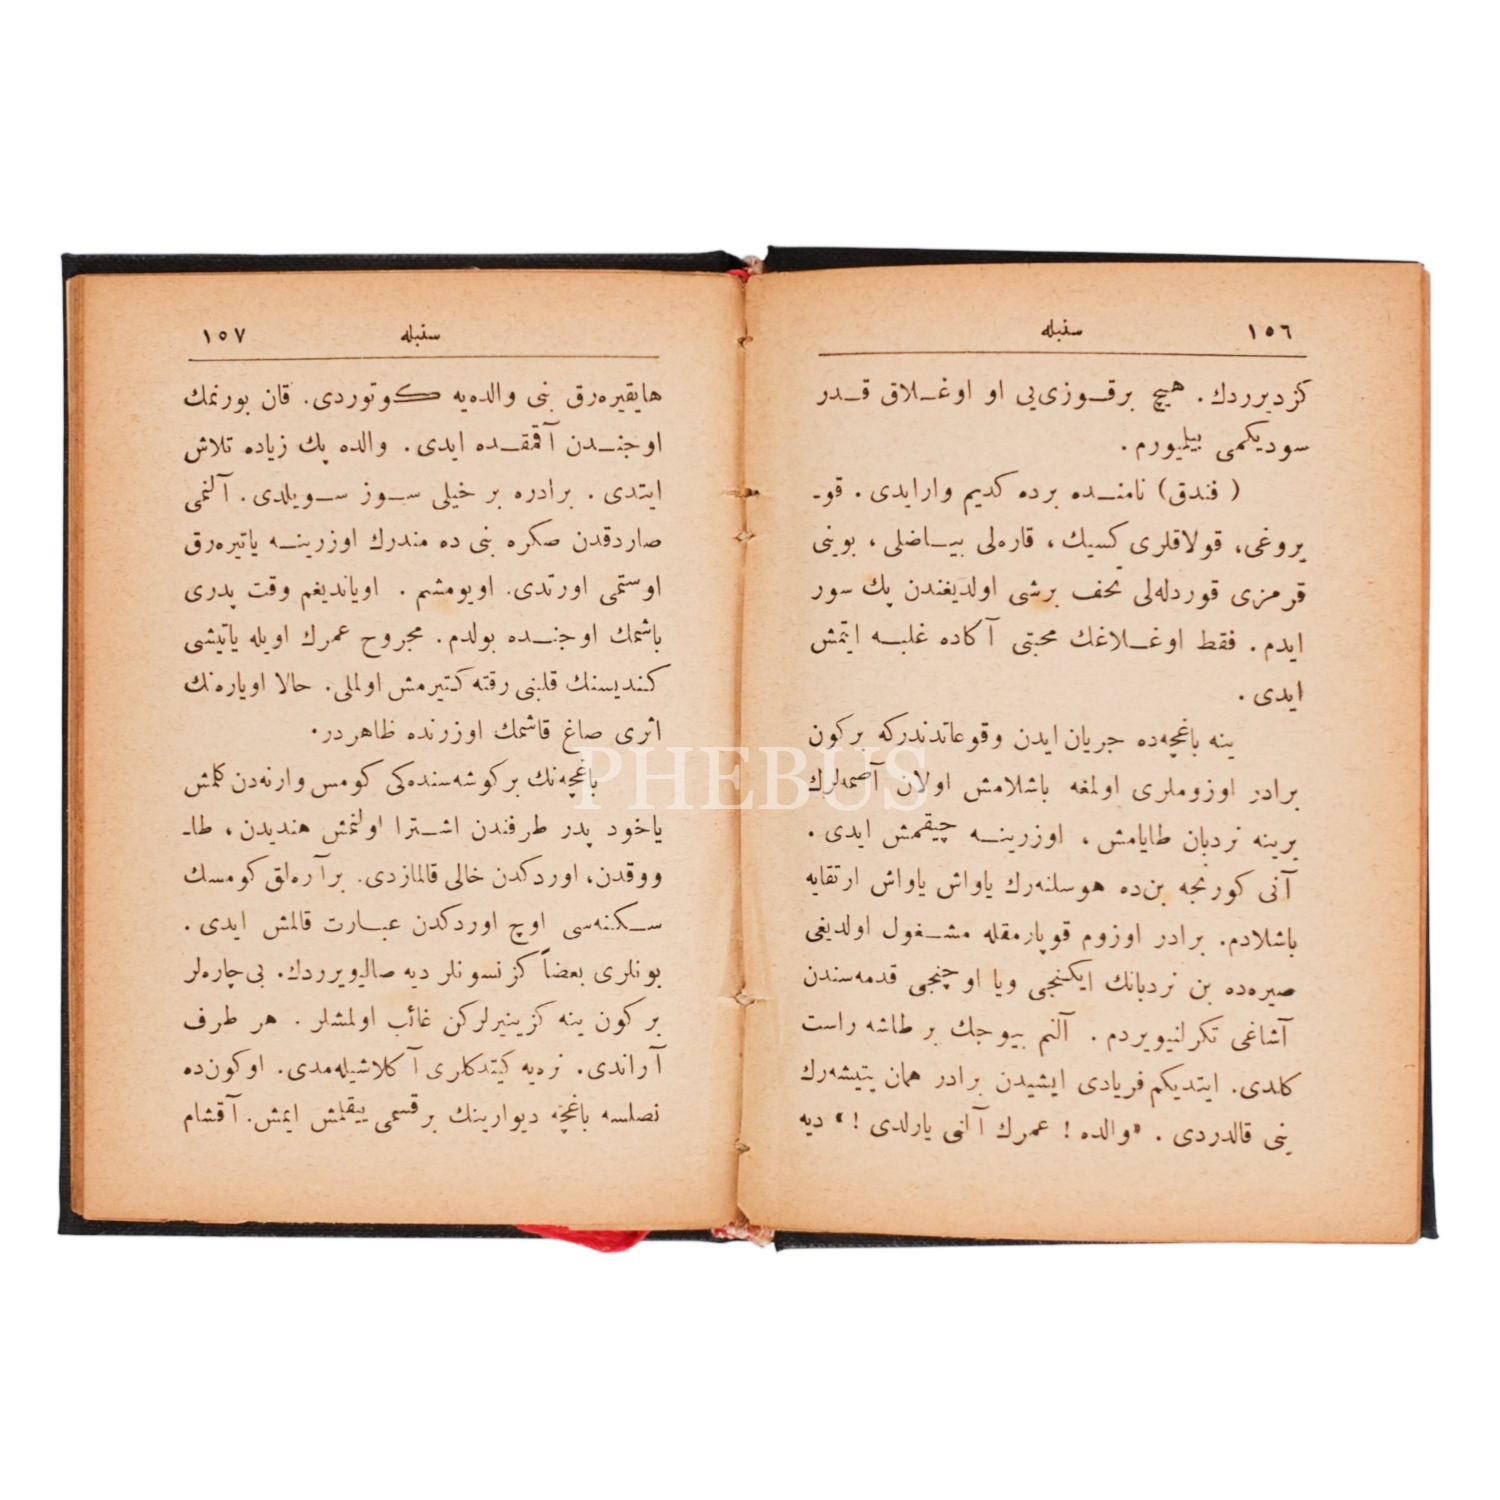 ١٥٦
سنبله
كزدیرردك. هیچ برقــوزی‌یی او اوغــلاق قــدر
سودیكمی بیلیورم.
(فندق) نامنــده برده كدیم وارایدی. قو-
یروغی، قولاقلری كسیك، قاره‌لی بیــاضلی، بوینی
قرمزی قوردله‌لی تحف برشی اولدیغندن پك سور
ایدم. فقط اوغــلاغك محبتی آكاده غلبــه ایتمش
ایدی.
ینه باغچه‌ده جریان ایدن وقوعاتدندركه بركون
برادر اوزوملری اولمغه باشلامش اولان آصمه‌لرك
برینه نردبان طایامش، اوزرینــه چیقمش ایدی.
آنی كورنجه بن‌ده هوسلنه‌رك یاواش یاواش ارتقایه
باشلادم. برادر اوزوم قوپارمقله مشــغول اولدیغی
صیره‌ده بن نردبانك ایكنجی ویا اوچنجی قدمه‌سندن
آشاغی تكرلنیویردم. آلنم بیوجك بر طاشه راست
كلدی. ایتدیكم فریادی ایشیدن برادر همان یتیشه‌رك
بنی قالدردی. «والده! عمرك آلنی یارلدی!» دیه
١٥٧
سنبله
هایقیره‌رق بنی والده‌یه كوتوردی. قان بورنمك
اوجنــدن آقمقــده ایدی. والده پك زیاده تلاش
ایتدی. برادره بر خیلی ســوز ســویلدی. آلنمی
صاردقدن صكره بنی ده مندرك اوزرینــه یاتیره‌رق
اوستمی اورتدی. اویومشم. اویاندیغم وقت پدری
باشمك اوجنــده بولدم. مجروح عمرك اویله یاتیشی
كندیسنك قلبنی رقته كتیرمش اولملی. حالا اویاره‌نك
اثری صاغ قاشمك اوزرنده ظاهردر.
باغچه‌نك بركوشه‌سنده‌كی كومس وارنه‌دن كلمش
یاخود پدر طرفندن اشــترا اولنمش هندیدن، طا-
ووقدن، اوردكدن خالی قالمازدی. برآره‌لق كومسك
ســكنه‌سی اوچ اوردكدن عبــارت قالمش ایدی.
بونلری بعضاً كزنسونلر دیه صالیویرردك. بی‌چاره‌لر
بركون ینه كزینیرلركن غائب اولمشلر. هر طرف
آراندی. نره‌یه كیتدكلری آكلاشیله‌مدی. اوكون‌ده
نصلسه باغچه دیوارینك برقسمی ییقلمش ایمش. آقشام
PHEBUS